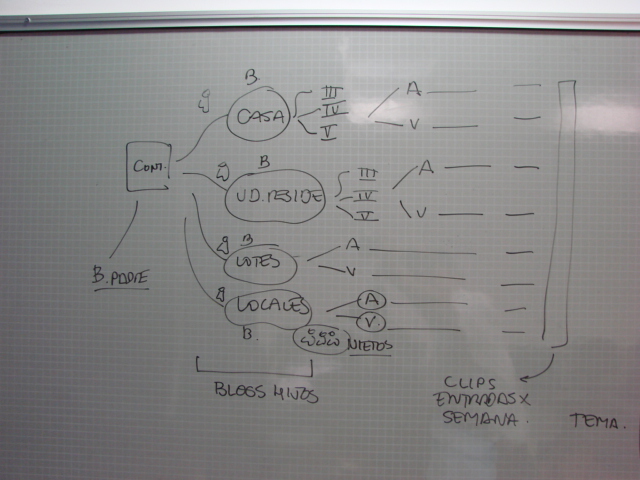 B.
CASA
III
IV
V
A
V
CONT.
B
UD. RESIDE
III
IV
V
A
V
B. PADRE
B
LOTES
A
V
LOCALES
A
V.
B.
NIETOS
BLOGS HIJOS
CLIPS
ENTRADAS X
SEMANA.
TEMA.